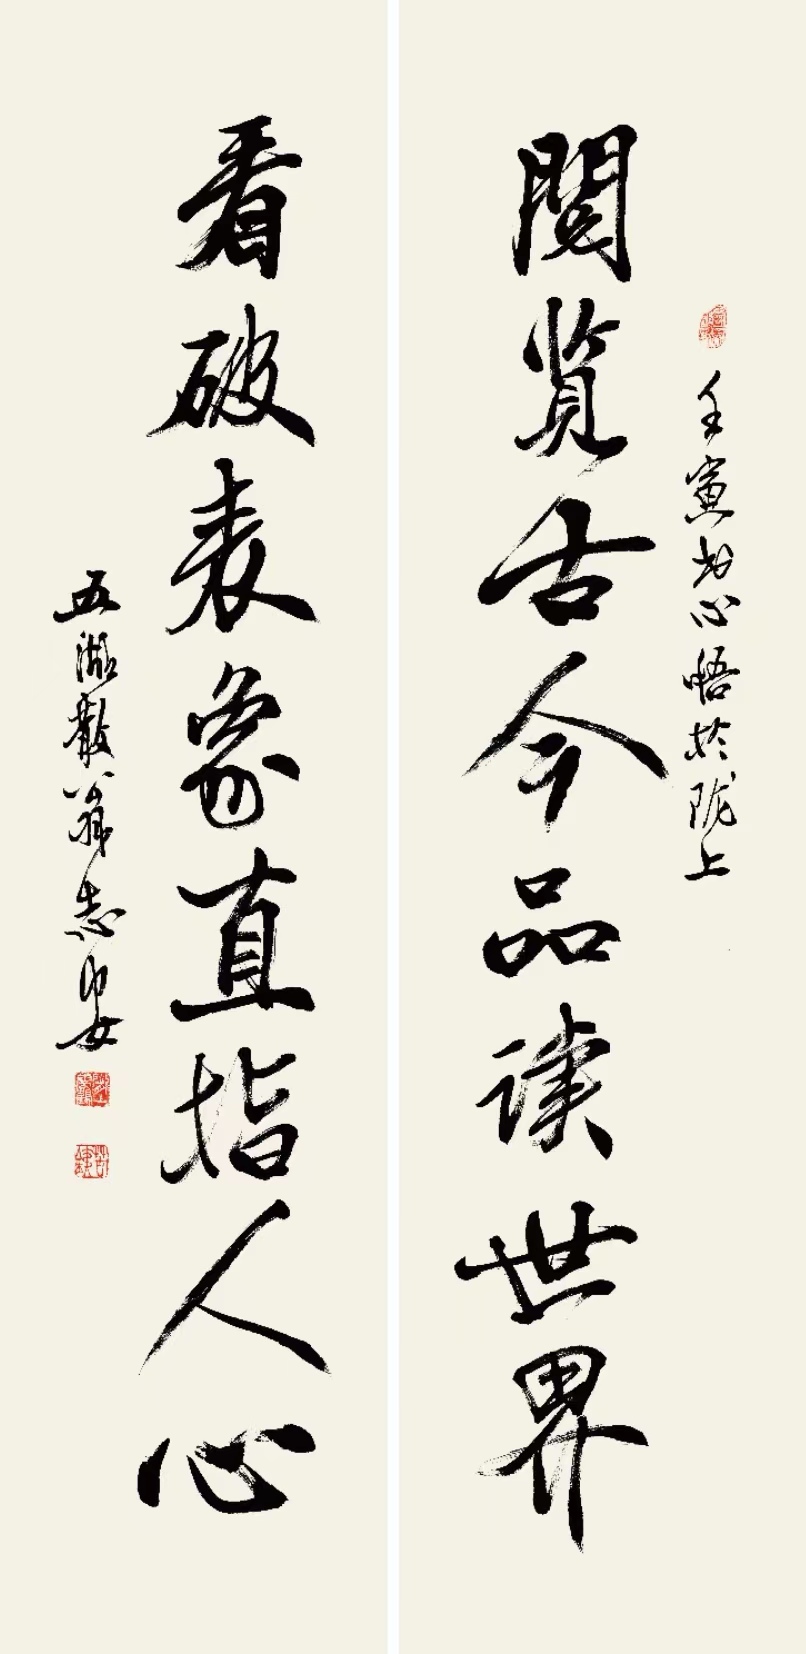 閲览古今品读世界
壬寅书心悟於陇上
看破表象直指人心
五湖散翁志安